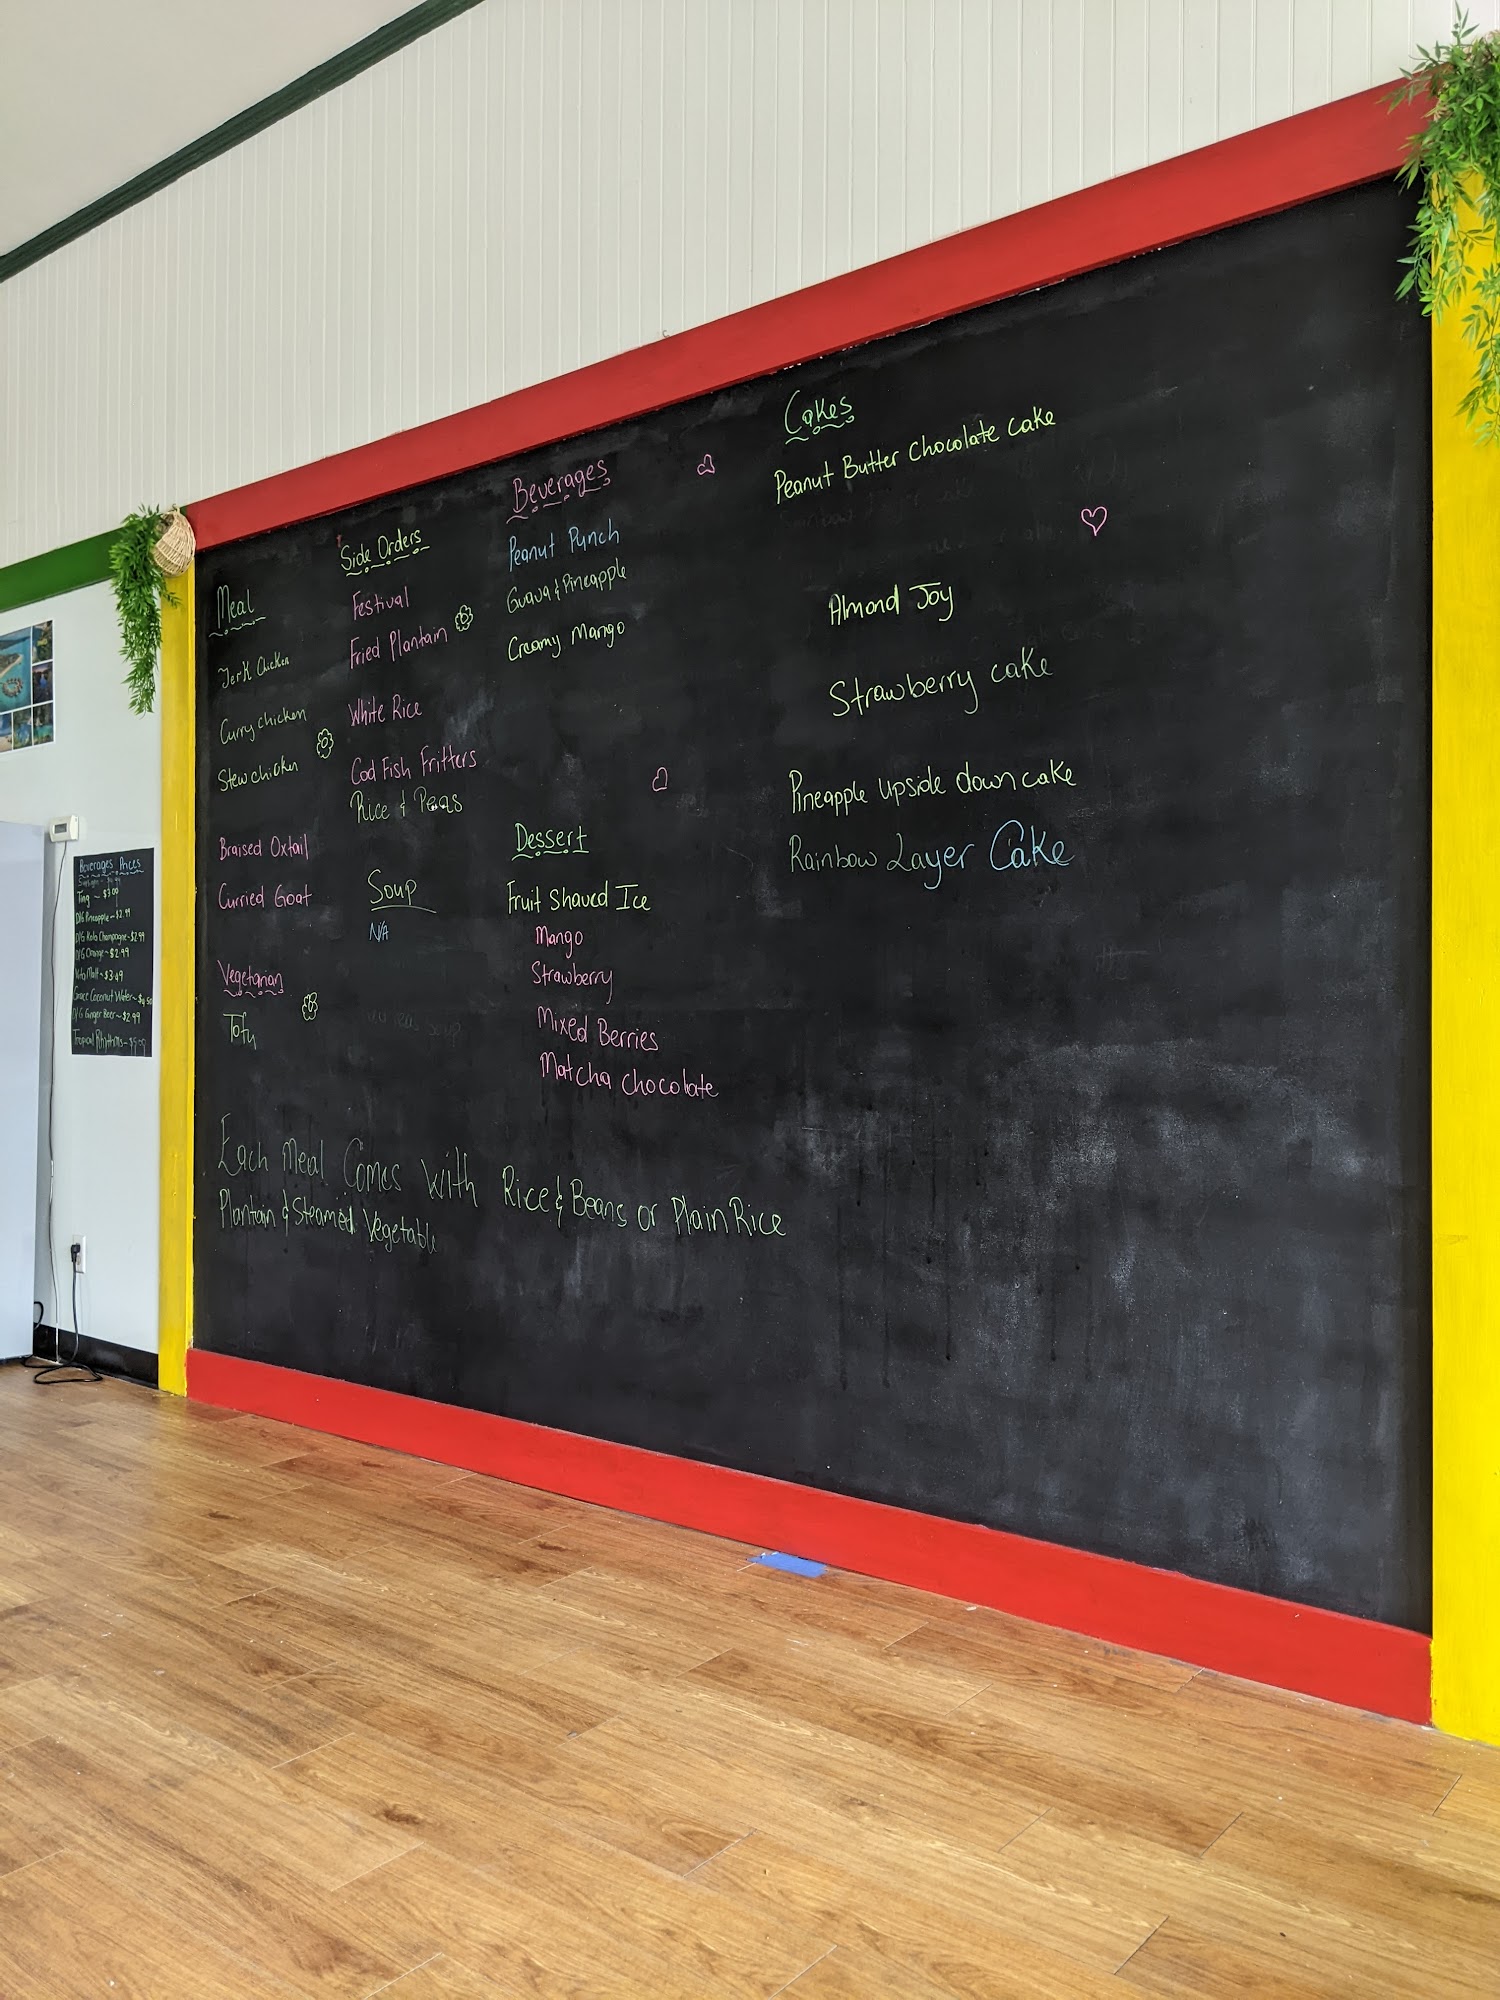 Meal
Jerk Chicken
Curry chicken
Stew chicken
Braised Oxtail
Curried Goat
Vegetarian
Tofu
Side Orders
Festival
Fried Plantain
White Rice
Cod Fish Fritters
Rice & Peas
Soup
N/A
Beverages
Peanut Punch
Guava & Pineapple
Creamy Mango
Dessert
Fruit Shaved Ice
Mango
Strawberry
Mixed Berries
Matcha chocolate
Cakes
Peanut Butter Chocolate cake
Almond Joy
Strawberry cake
Pineapple upside down cake
Rainbow Layer Cake
Each Meal Comes With Rice & Beans or Plain Rice
Plantain & Steamed Vegetable
Beverages Prices
Ting - $3.00
D/G Pineapple - $2.99
D/G Kola Champagne - $2.99
D/G Orange - $2.99
Malt - $3.49
Grace Coconut Water - $4.50
D/G Ginger Beer - $2.99
Tropical Rhythms -